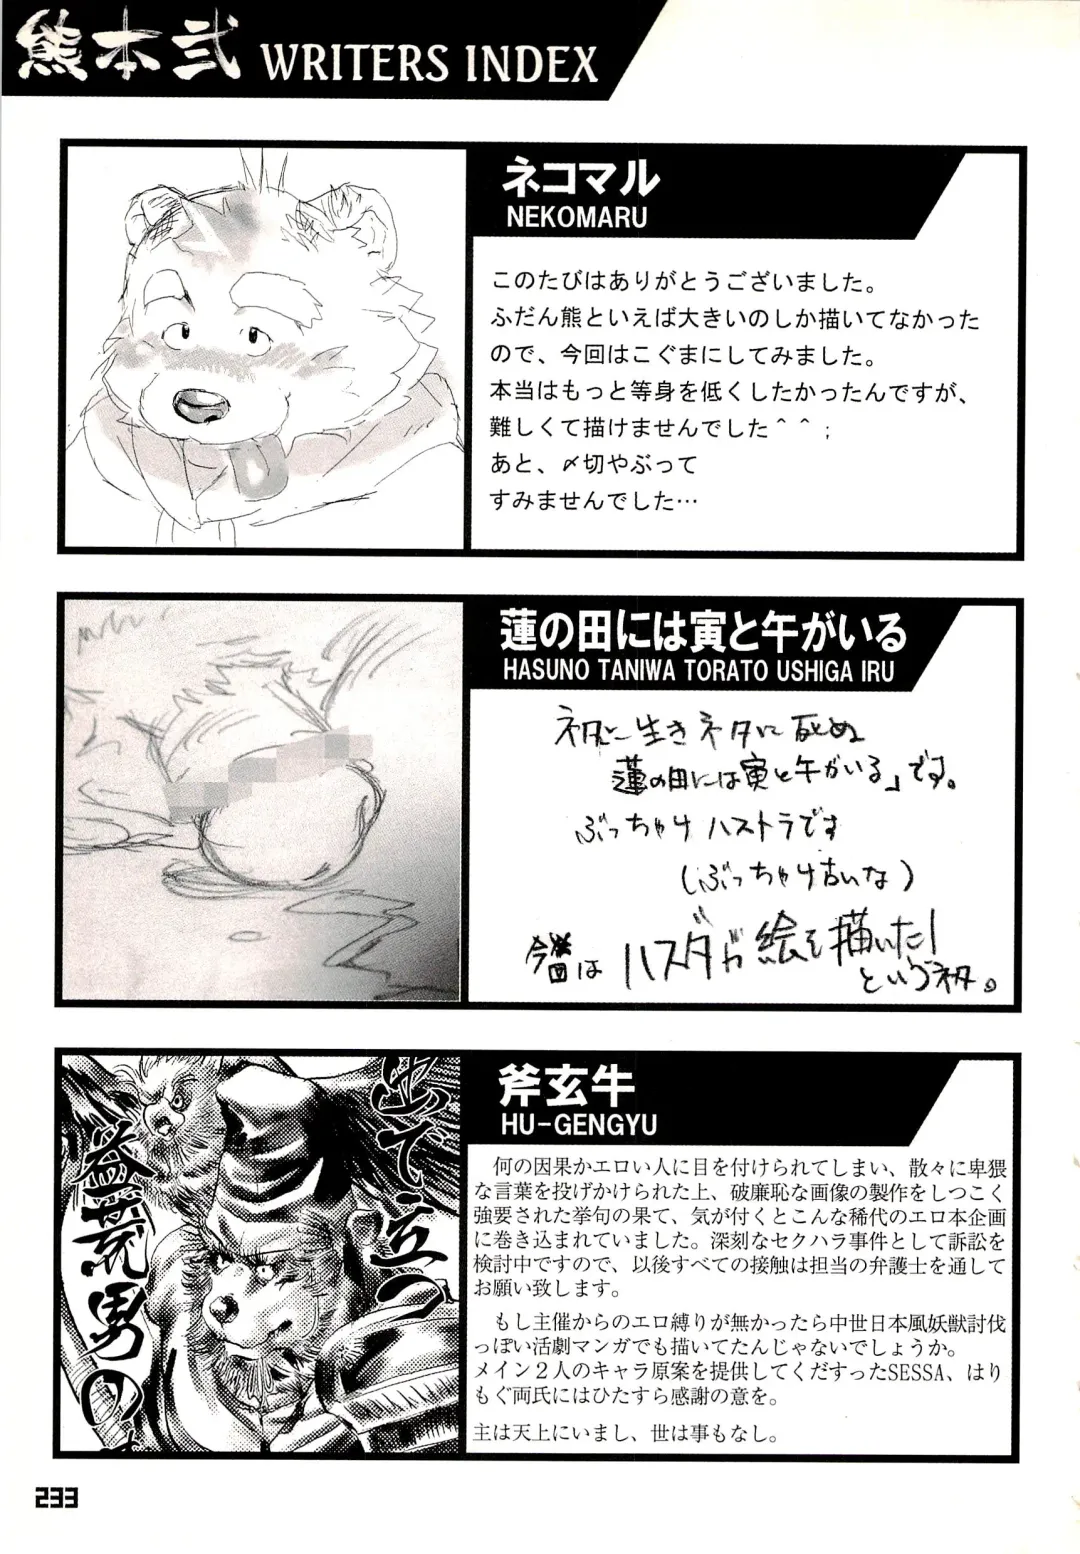 熊本弐 WRITERS INDEX
ネコマル
NEKOMARU
このたびはありがとうございました。
ふだん熊といえば大きいのしか描いてなかった
ので、今回はこぐまにしてみました。
本当はもっと等身を低くしたかったんですが、
難しくて描けませんでした＾＾；
あと、〆切やぶって
すみませんでした…
蓮の田には寅と午がいる
HASUNO TANIWA TORATO USHIGA IRU
ネタに生きネタに死ぬ
蓮の田には寅と午がいる」です。
ぶっちゃけハストラです
(ぶっちゃけ古いな)
今回はハスダが絵を描いた!
というネタ。
斧玄牛
HU-GENGYU
何の因果かエロい人に目を付けられてしまい、散々に卑猥
な言葉を投げかけられた上、破廉恥な画像の製作をしつこく
強要された挙句の果て、気が付くとこんな稀代のエロ本企画
に巻き込まれていました。深刻なセクハラ事件として訴訟を
検討中ですので、以後すべての接触は担当の弁護士を通して
お願い致します。
もし主催からのエロ縛りが無かったら中世日本風妖獣討伐
っぽい活劇マンガでも描いてたんじゃないでしょうか。
メイン２人のキャラ原案を提供してくだすったSESSA、はり
もぐ両氏にはひたすら感謝の意を。
主は天上にいまし、世は事もなし。
出で立つ
益荒男の
233